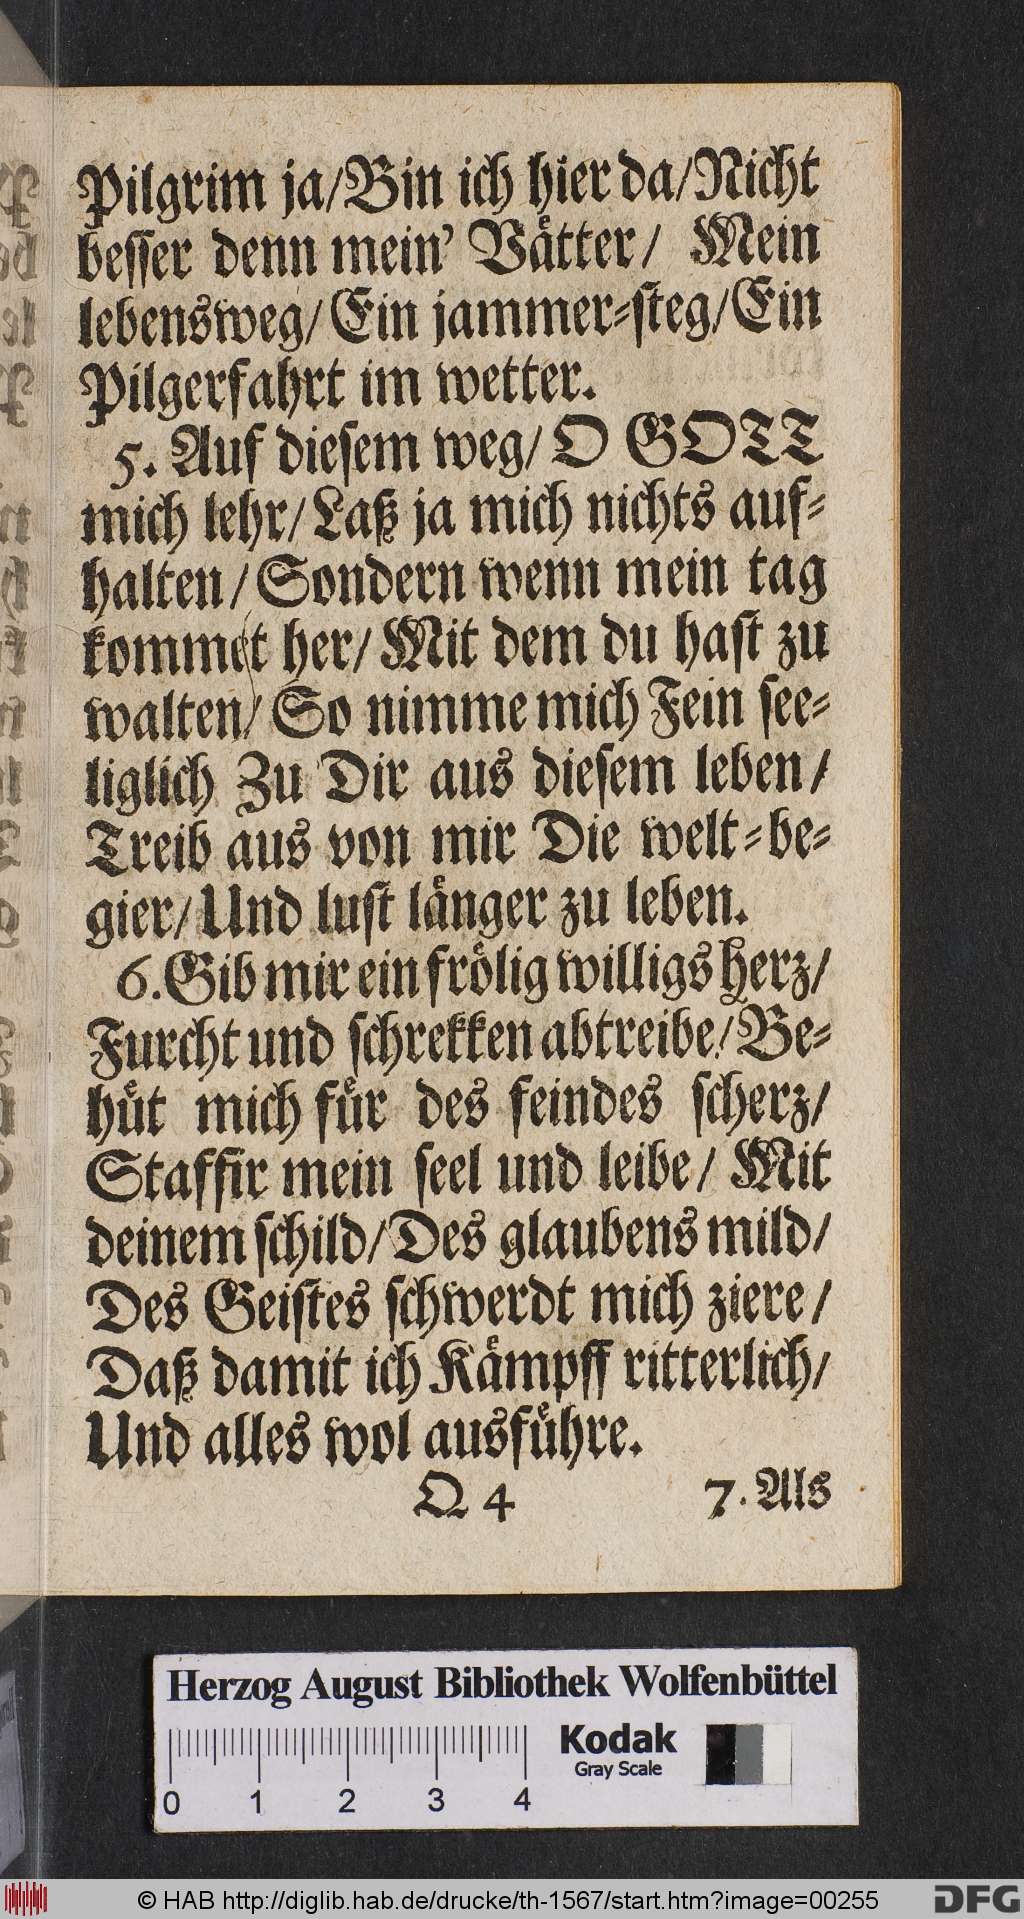 Pilgrim ja/Bin ich hier da/Nicht
besser denn mein' Våtter/ Mein
lebensweg/Ein jammer-steg/Ein
Pilgerfahrt im wetter.
5. Auf diesem weg/O GOTT
mich lehr/Laß ja mich nichts auf-
halten/Sondern wenn mein tag
kommet her/Mit dem du hast zu
walten/ So nimme mich Fein see-
liglich Zu Dir aus diesem leben/
Treib aus von mir Die welt-be-
gier/Und lust långer zu leben.
6. Gib mir ein frölig willigs Herz/
Furcht und schrekken abtreibe/Be-
hüt mich für des feindes scherz/
Staffir mein seel und leibe/ Mit
deinem schild/Des glaubens mild/
Des Geistes schwerdt mich ziere/
Daß damit ich Kämpff ritterlich/
Und alles wol ausführe.
Q 4 7. Als
Herzog August Bibliothek Wolfenbüttel
Kodak
Gray Scale
0 1 2 3 4
© HAB http://diglib.hab.de/drucke/th-1567/start.htm?image=00255
DFG